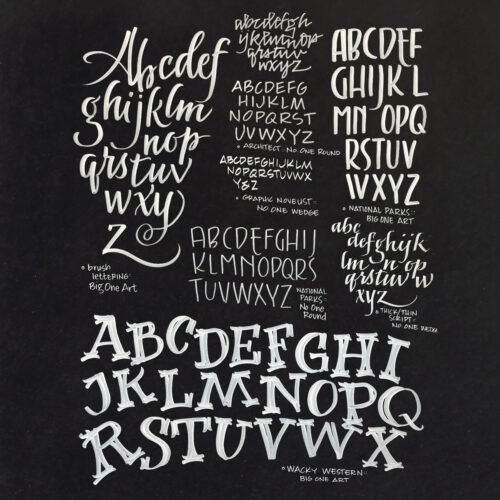 Abcdef
ghijklm
nop
qrstuv
wxy
z
brush
lettering:
Big One Art
abcdefgh
ijklmnop
qrstuv
wxyz
ABCDEFG
HIJKLM
NOPQRST
UVWXYZ
ARCHITECT :: NO ONE ROUND
ABCDEFGHIJKLM
NOPQRSTUVWX
Y&Z
GRAPHIC NOVELIST ::
NO ONE WEDGE
ABCDEF
GHIJKL
MN OPQ
RSTUV
WXYZ
NATIONAL PARKS ::
BIG ONE ART
ABCDEFGHIJ
KLMNOPQRS
TUVWXYZ
NATIONAL
PARKS ::
No One
Round
abc
defghijk
lmnop
qrstuvw
xyz
THICK/THIN
SCRIPT ::
NO ONE WEDGE
ABCDEFGHI
JKLMNOPQ
RSTUVWX
WACKY WESTERN ::
BIG ONE ART